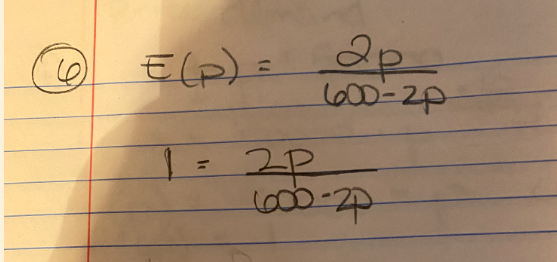 ⑥ E(p) = 2p / 600-2p
1 = 2p / 600-2p